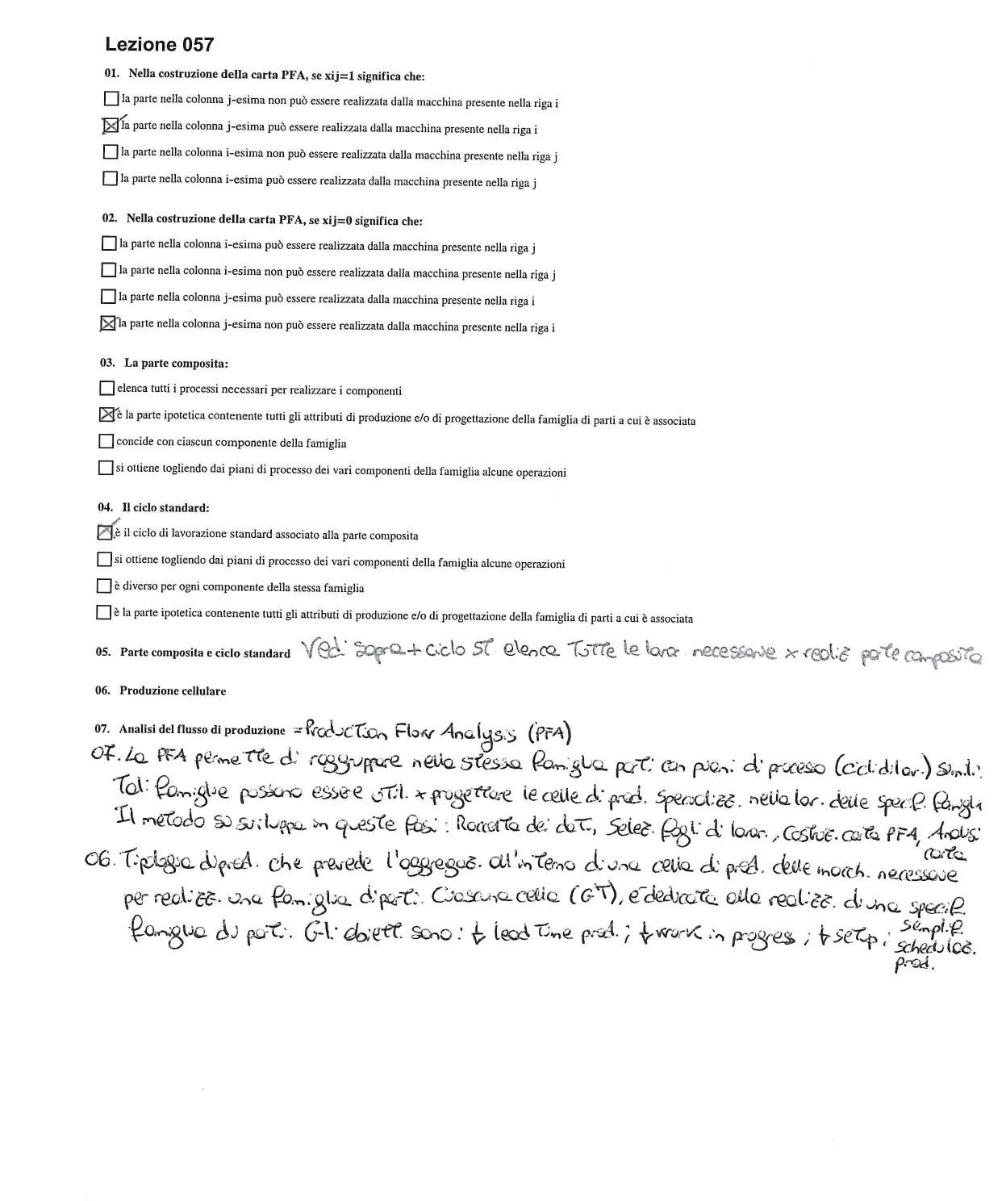 Lezione 057
01. Nella costruzione della carta PFA, se xij=1 significa che:
la parte nella colonna j-esima non può essere realizzata dalla macchina presente nella riga i
la parte nella colonna j-esima può essere realizzata dalla macchina presente nella riga i
la parte nella colonna i-esima non può essere realizzata dalla macchina presente nella riga j
la parte nella colonna i-esima può essere realizzata dalla macchina presente nella riga j
02. Nella costruzione della carta PFA, se xij=0 significa che:
la parte nella colonna i-esima può essere realizzata dalla macchina presente nella riga j
la parte nella colonna i-esima non può essere realizzata dalla macchina presente nella riga j
la parte nella colonna j-esima può essere realizzata dalla macchina presente nella riga i
la parte nella colonna j-esima non può essere realizzata dalla macchina presente nella riga i
03. La parte composita:
elenca tutti i processi necessari per realizzare i componenti
è la parte ipotetica contenente tutti gli attributi di produzione e/o di progettazione della famiglia di parti a cui è associata
concide con ciascun componente della famiglia
si ottiene togliendo dai piani di processo dei vari componenti della famiglia alcune operazioni
04. Il ciclo standard:
è il ciclo di lavorazione standard associato alla parte composita
si ottiene togliendo dai piani di processo dei vari componenti della famiglia alcune operazioni
è diverso per ogni componente della stessa famiglia
è la parte ipotetica contenente tutti gli attributi di produzione e/o di progettazione della famiglia di parti a cui è associata
05. Parte composita e ciclo standard Vedi sopra + ciclo ST elenca TUTTE le lavor necessarie x realiz parte composita
06. Produzione cellulare
07. Analisi del flusso di produzione = Production Flow Analysis (PFA)
07. La PFA permette di raggruppare nella stessa famiglia parti con piani di proceso (cicli di lav.) simili.
Tali famiglie possono essere util. x progettare le celle di prod. specializz. nella lav. delle specif. famiglie
Il metodo si sviluppa in queste fasi: Raccolta dei dati, Selez. fogli di lavor., Costruz. carta PFA, Analisi
carta
06. Tipologia di prod. che prevede l'aggregaz. all'interno di una cella di prod. delle macch. necessarie
per realizz. una famiglia di parti. Ciascuna cella (GT), è dedicata alla realizz. di una specif.
famiglia di parti. Gli obiett. sono: ↓ lead time prod.; ↓ work in progress; ↓ setup; semplif.
schedulaz.
prod.